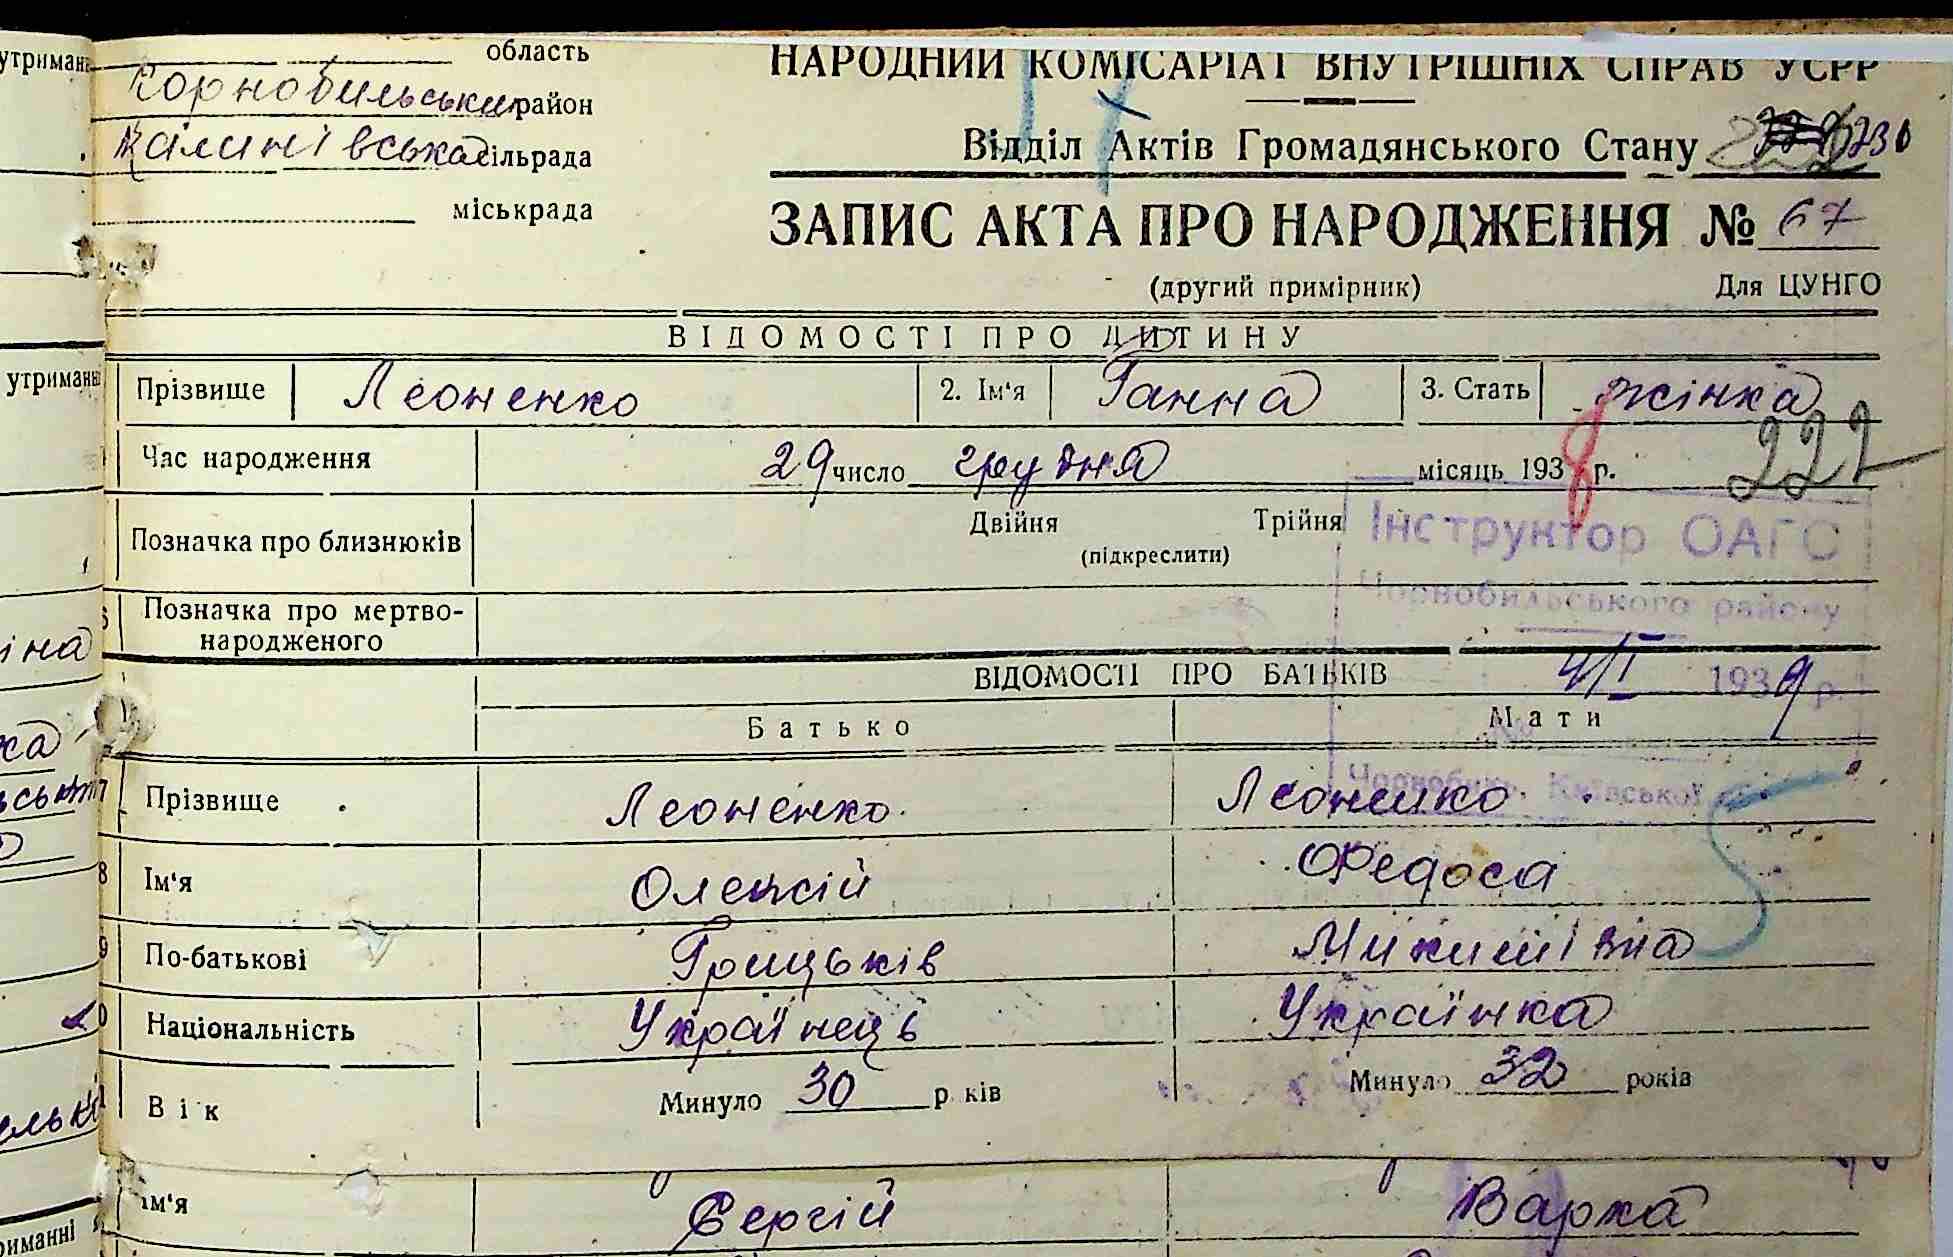 область
НАРОДНИЙ КОМІСАРІАТ ВНУТРІШНІХ СПРАВ УСРР
Чорнобильський район
Відділ Актів Громадянського Стану
Калинівська сільрада
міськрада
ЗАПИС АКТА ПРО НАРОДЖЕННЯ № 67
(другий примірник) Для ЦУНГО
ВІДОМОСТІ ПРО ДИТИНУ
Прізвище Леоненко 2. Ім'я Ганна 3. Стать жінка
Час народження 29 число грудня місяць 1938 р. 222
Позначка про близнюків Двійня Трійня
(підкреслити)
Інструктор ОАГС
Чорнобильського району
Позначка про мертво-
народженого
4/I 1939 р.
ВІДОМОСТІ ПРО БАТЬКІВ
Батько Мати
Чорнобиль, Київської
Прізвище Леоненко Леоненко
8 Ім'я Олексій Федоса
9 По-батькові Грицьків Микитівна
Національність Українець Українка
Вік Минуло 30 років Минуло 32 років
Ім'я Сергій Варка